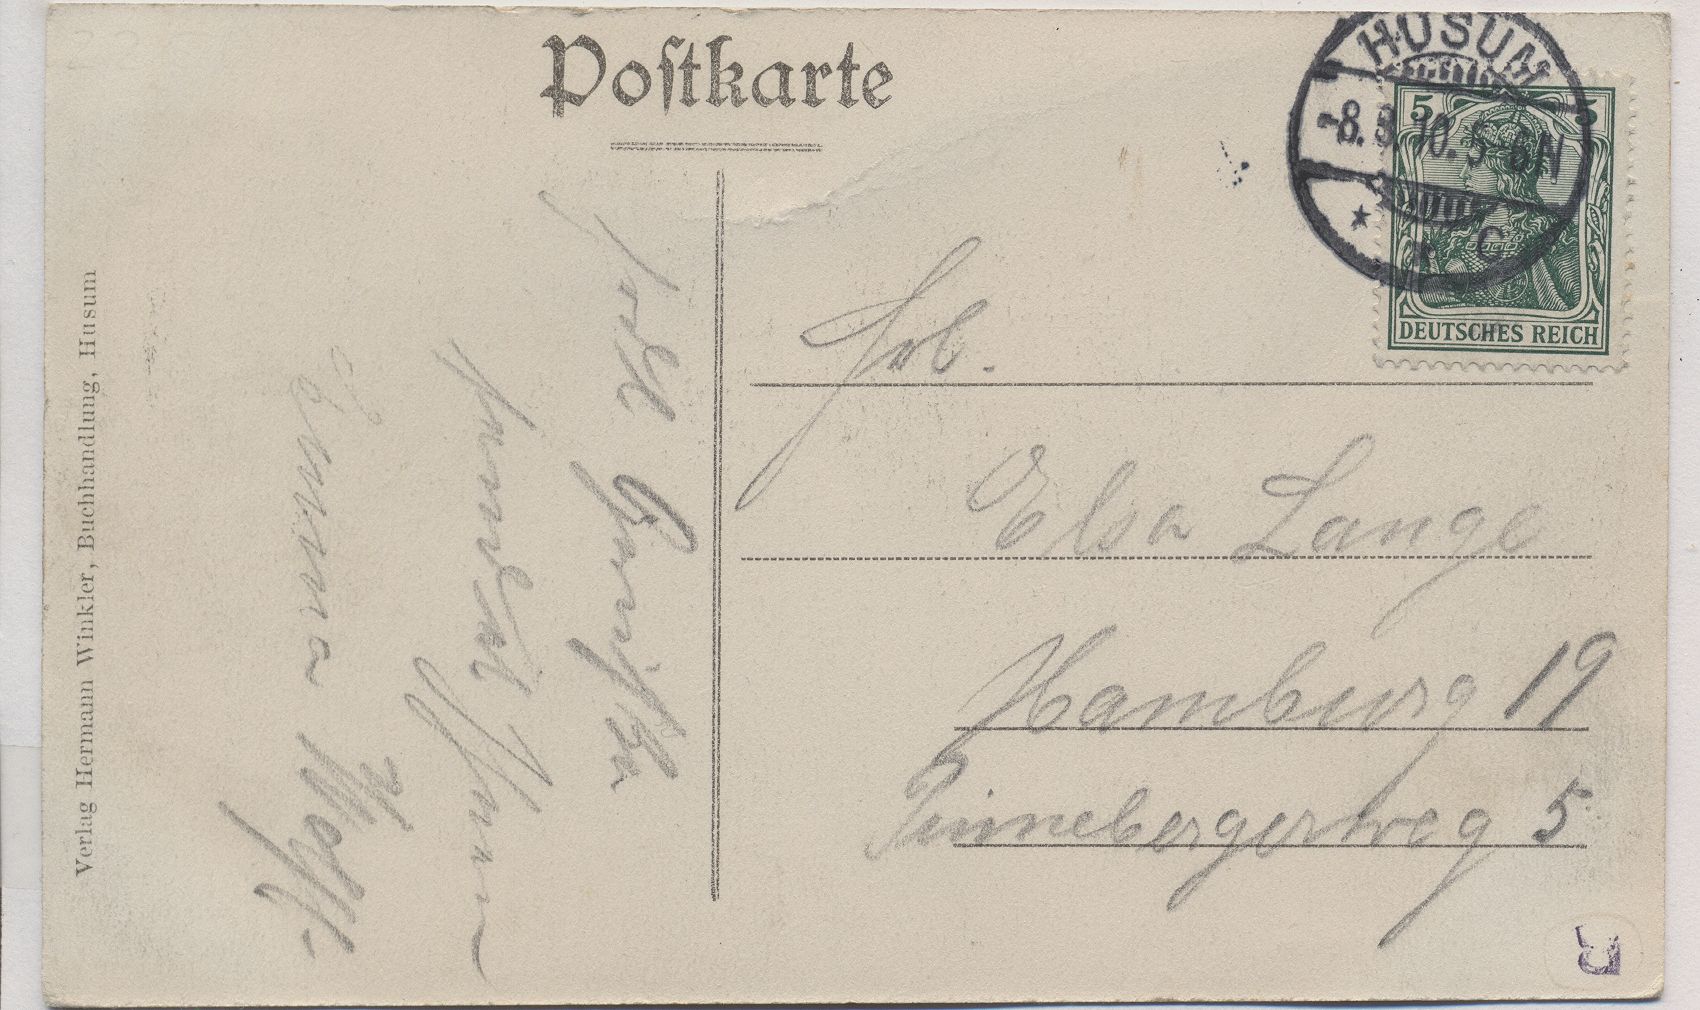 Postkarte
HUSUM
-8. 8. 10. 5-6N
* C
5 5
DEUTSCHES REICH
Frl.
Elsa Lange
Hamburg 19
Pinnebergerweg 5
Grüße
sendet Ihnen
Emma
Verlag Hermann Winkler, Buchhandlung, Husum